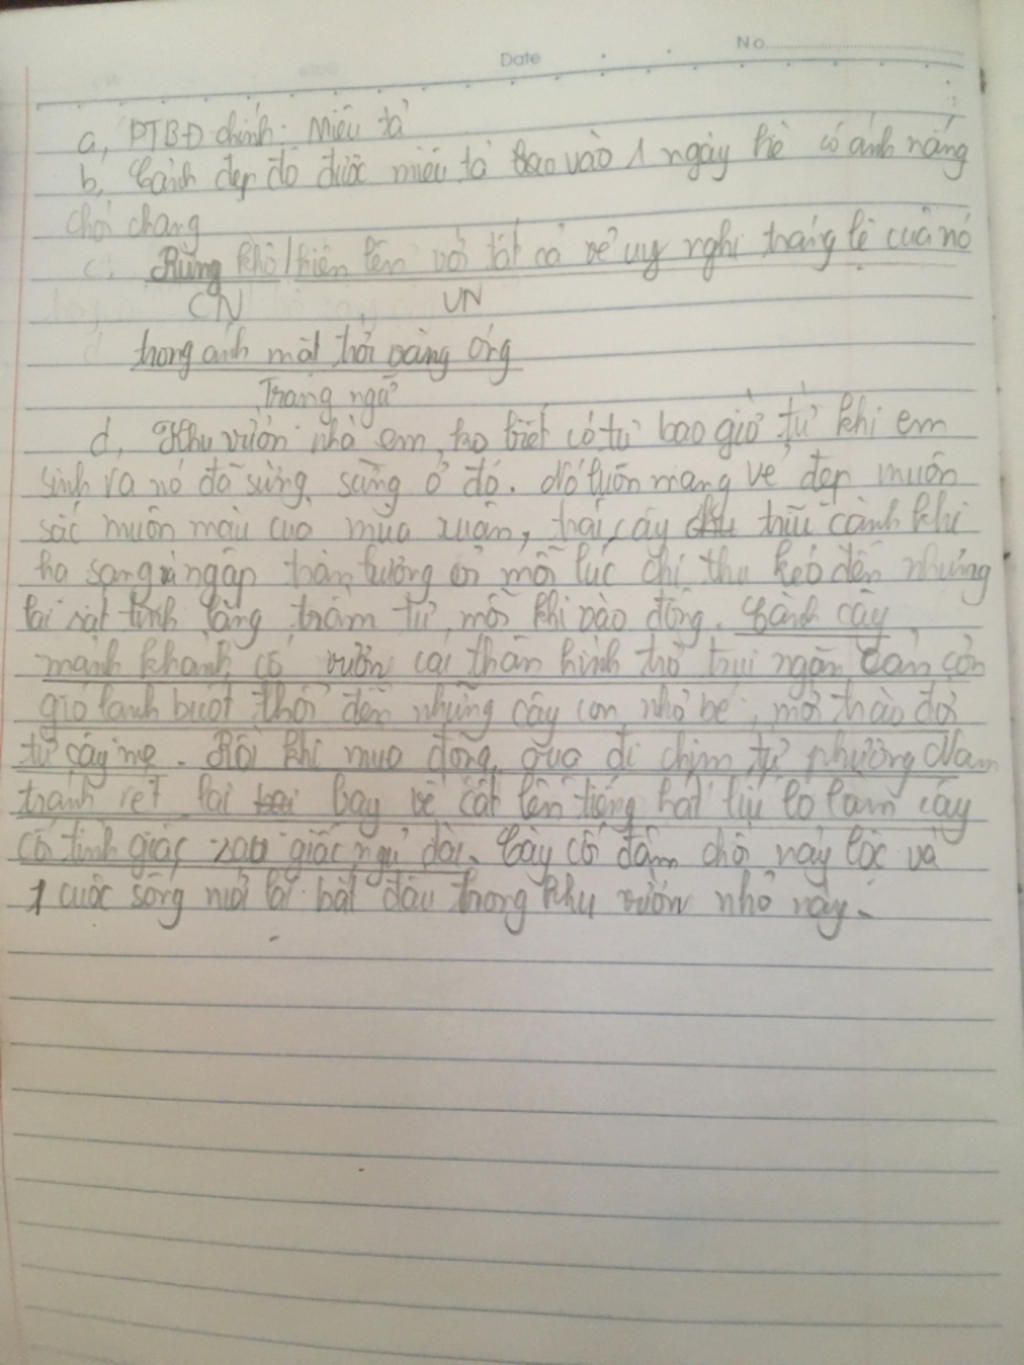 Date No
a, PTBĐ chính: Miêu tả
b, Cảnh đẹp đó được miêu tả vào 1 ngày hè có ánh nắng
chói chang
c, Rừng khô / hiện lên với tất cả vẻ uy nghi tráng lệ của nó
CN VN
trong ánh mặt trời vàng óng
Trạng ngữ
d, Khu vườn nhà em, ko biết có từ bao giờ từ khi em
sinh ra nó đã sừng sững ở đó. Nó luôn mang vẻ đẹp muôn
sắc muôn màu của mùa xuân, trái cây trĩu cành khi
hạ sang ngập tràn hương mỗi lúc chị thu kéo đến nhưng
lại rất tĩnh lặng trầm tư mỗi khi vào đông. Cành cây
mảnh khảnh, cố vươn cái thân hình trơ trụi ngăn cản cơn
gió lạnh buốt thổi đến những cây con nhỏ bé, mới chào đời
từ cây mẹ. Rồi khi mùa đông qua đi chim từ phương Nam
tránh rét lại bay về cất lên tiếng hát líu lo làm cây
cối tỉnh giấc sau giấc ngủ dài. Cây cối đâm chồi nảy lộc và
1 cuộc sống mới lại bắt đầu trong khu vườn nhỏ này.